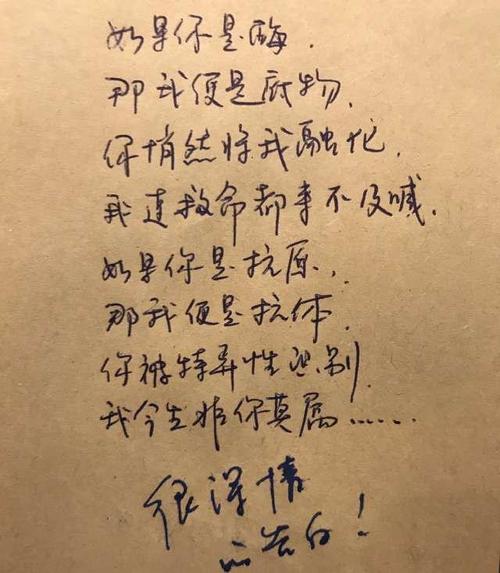 如果你是酶.
那我便是底物,
你悄然将我融化,
我连救命都来不及喊.
如果你是抗原,.
那我便是抗体,
你被特异性识别,
我今生非你莫属……
很深情
的告白!